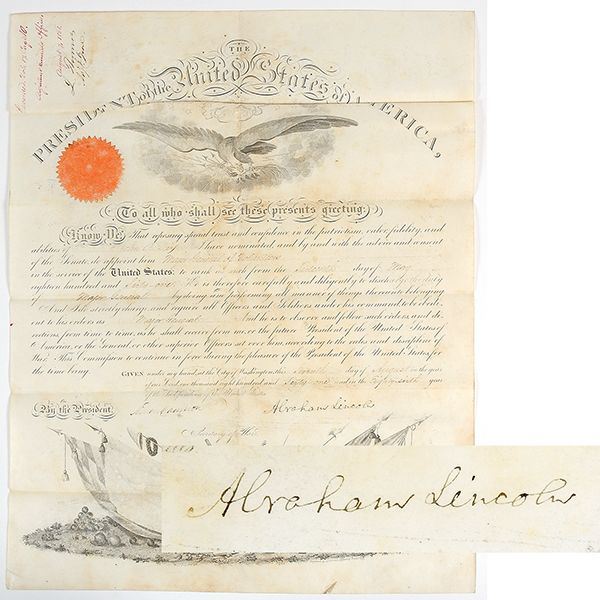 THE
PRESIDENT of the United States of AMERICA,
To all who shall see these presents greeting:
Know Ye, That reposing special trust and confidence in the patriotism, valor, fidelity, and
abilities of I have nominated, and by and with the advice and consent
of the Senate, do appoint him Major General of Volunteers
in the service of the United States: to rank as such from the day of May
eighteen hundred and Sixty one. He is therefore carefully and diligently to discharge the duty
of Major General by doing and performing all manner of things thereunto belonging.
And I do strictly charge, and require all Officers and Soldiers under his command to be obedi-
ent to his orders as Major General. And he is to observe and follow such orders, and di-
rections, from time to time, as he shall receive from me, or the future President of the United States of
America, or the General, or other superior Officers set over him, according to the rules and discipline of
War. This Commission to continue in force during the pleasure of the President of the United States, for
the time being.
GIVEN under my hand, at the City of Washington, this day of August in the year
of our Lord, one thousand eight hundred and Sixty one and in the Eighty sixth year
of the Independence of the United States.
By the President,
Abraham Lincoln
Secretary of War.
Abraham Lincoln